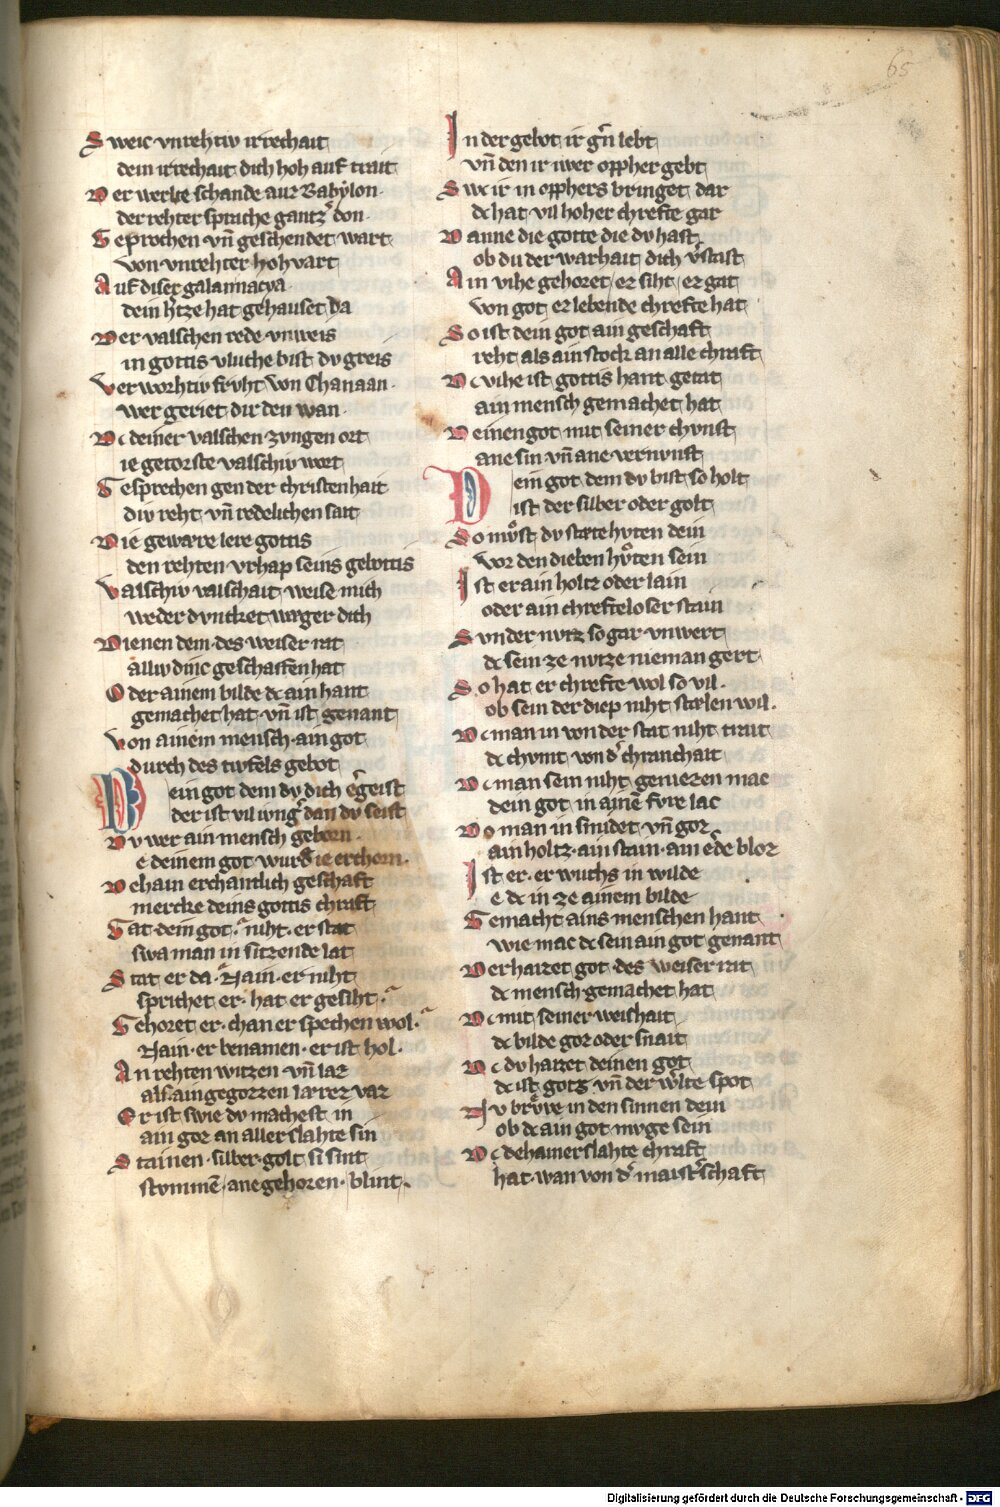 65
Sweic vnrehtiv irrechait
dein irrechait dich hoh auf trait
Der werlte schande auz Babylon.
der rehter sprache gantz don.
Geprochen vn̄ geschendet wart
von vnrehter hohvart
Auf diser galamatya.
dein h̓tze hat gehauset da
Der valschen rede vnweis
in gottis vluche bist dv greis
Verworhtiv frvht von Chanaan.
wer geriet dir den wan.
Dc deiner valschen zvngen ort
ie getorste valschiv wort
Gesprechen gen der christenhait
div reht vn̄ redelichen sait
Die gewære lere gottis
den rehten vrhap seins gebottis
Valschiv valschait weise mich
weder dvncket wæger dich
Dienen dem des weiser rat
alliv dinc geschaffen hat
Oder ainem bilde dc ain hant
gemachet hat vn̄ ist genant
Von ainem mensch ain got
durch des tivfels gebot
Dein got dem dv dich ergeist
der ist vil ivng̓ dan dv seist
Dv wer ain mensch geborn.
e deinem got wurd ie erchorn.
Dehain erchantlich geschaft
mercke deins gottis chraft
Gat dein got. niht. er stat
swa man in sitzende lat
Stat er da. Nain. er niht
sprichet er. hat er gesiht.
Gehoret er. chan er spechen wol.
Nain. er benamen. er ist hol.
An rehten witzen vn̄ lær
als ain gegozzen lærez vaz
Er ist swie dv machest in
ain goz an aller slahte sin
Stainen. silber. golt si sint
stvmmē, ane gehoren. blint.
In der gebot ir gn̄ lebt
vn̄ den ir iwer oppher gebt
Swe ir in opphers bringet dar
dc hat vil hoher chrefte gar
Danne die gotte die dv hast
ob du der warhait dich v̓stast
Ain vihe gehoret, er siht, er gat
von got er lebende chrefte hat
So ist dein got ain geschaft
reht als ain stock an alle chraft
Dc vihe ist gottis hant getat
ain mensch gemachet hat
Deinen got mit seiner chvnst
ane sin vn̄ ane vernvnst
Dein got dem dv bist so holt
ist der silber oder golt
So mvͦst dv stæte hvten dein
vor den dieben hvͦten sein
Ist er ain holtz oder lain
oder ain chrefteloser stain
Svnder nvtz so gar vnwert
dc sein ze nvtze nieman gert
So hat er chrefte wol so vil.
ob sein der diep niht stælen wil.
Dc man in von der stat niht trait
dc chvmt von d̓ chranchait
Dc man sein niht geniezen mac
dein got in ainē fvre lac
Do man in smidet vn̄ goz
ain holtz. ain stain. ain e̓de bloz
Ist er. er wuchs in wilde
e dc in ze ainem bilde
Gemacht ains menschen hant
wie mac dc sein ain got genant
Der haizet got des weiser rat
dc mensch gemachet hat
Dc mit seiner weishait
dc bilde goz oder snait
Dc dv haizet deinen got
dc ist gotz vn̄ der w̓lte spot
Nv brvͤve in den sinnen dein
ob dc ain got mvge sein
Dc dehainer slahte chraft
hat. wan von d̓ maist̓schaft
Digitalisierung gefördert durch die Deutsche Forschungsgemeinschaft - DFG